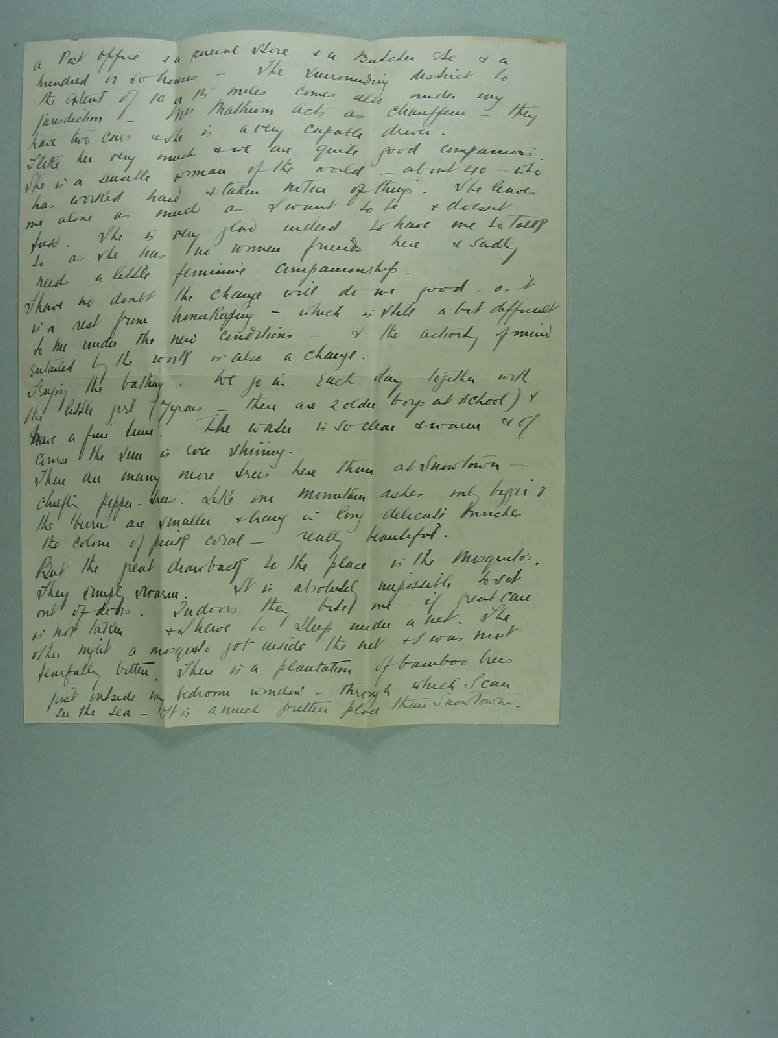 a Post Office & a general Store & a Butcher &c & a
hundred or so houses - The surrounding district to
the extent of 10 or 15 miles comes also under my
jurisdiction - Mrs acts as chauffeur - they
have two cars & she is a very capable driver.
I like her very much & we are quite good companions.
She is a sensible woman of the world - about 40 - who
has worked hard & taken notice of things. She leaves
me alone as much as I want to be & doesn't
fuss. She is very glad indeed to have me to talk
to as she has no women friends here & sadly
needs a little feminine companionship.
I have no doubt the change will do me good - as it
is a rest from housekeeping - which is still a bit difficult
to me under the new conditions - & the activity of mind
entailed by the work is also a change.
I enjoy the bathing. We go in each day together with
the little girl (7 years - there are 2 older boys at school) &
have a fine time. The water is so clear & warm & of
course the sun is shining.
There are many more trees here than at Snowtown -
chiefly pepper-trees. Like our mountain ashes only bigger &
the 'berries' are smaller & hang in long delicate bunches
the colour of pink coral - really beautiful.
But the great drawback to the place is the Mosquitos.
They simply swarm. It is absolutely impossible to sit
out of doors. Indoors they bite one - if great care
is not taken & I have to sleep under a net. The
other night a mosquito got inside the net & I was most
fearfully bitten. There is a plantation of bamboo trees
just outside my bedroom window - through which I can
see the sea - It is a much prettier place than Snowtown.